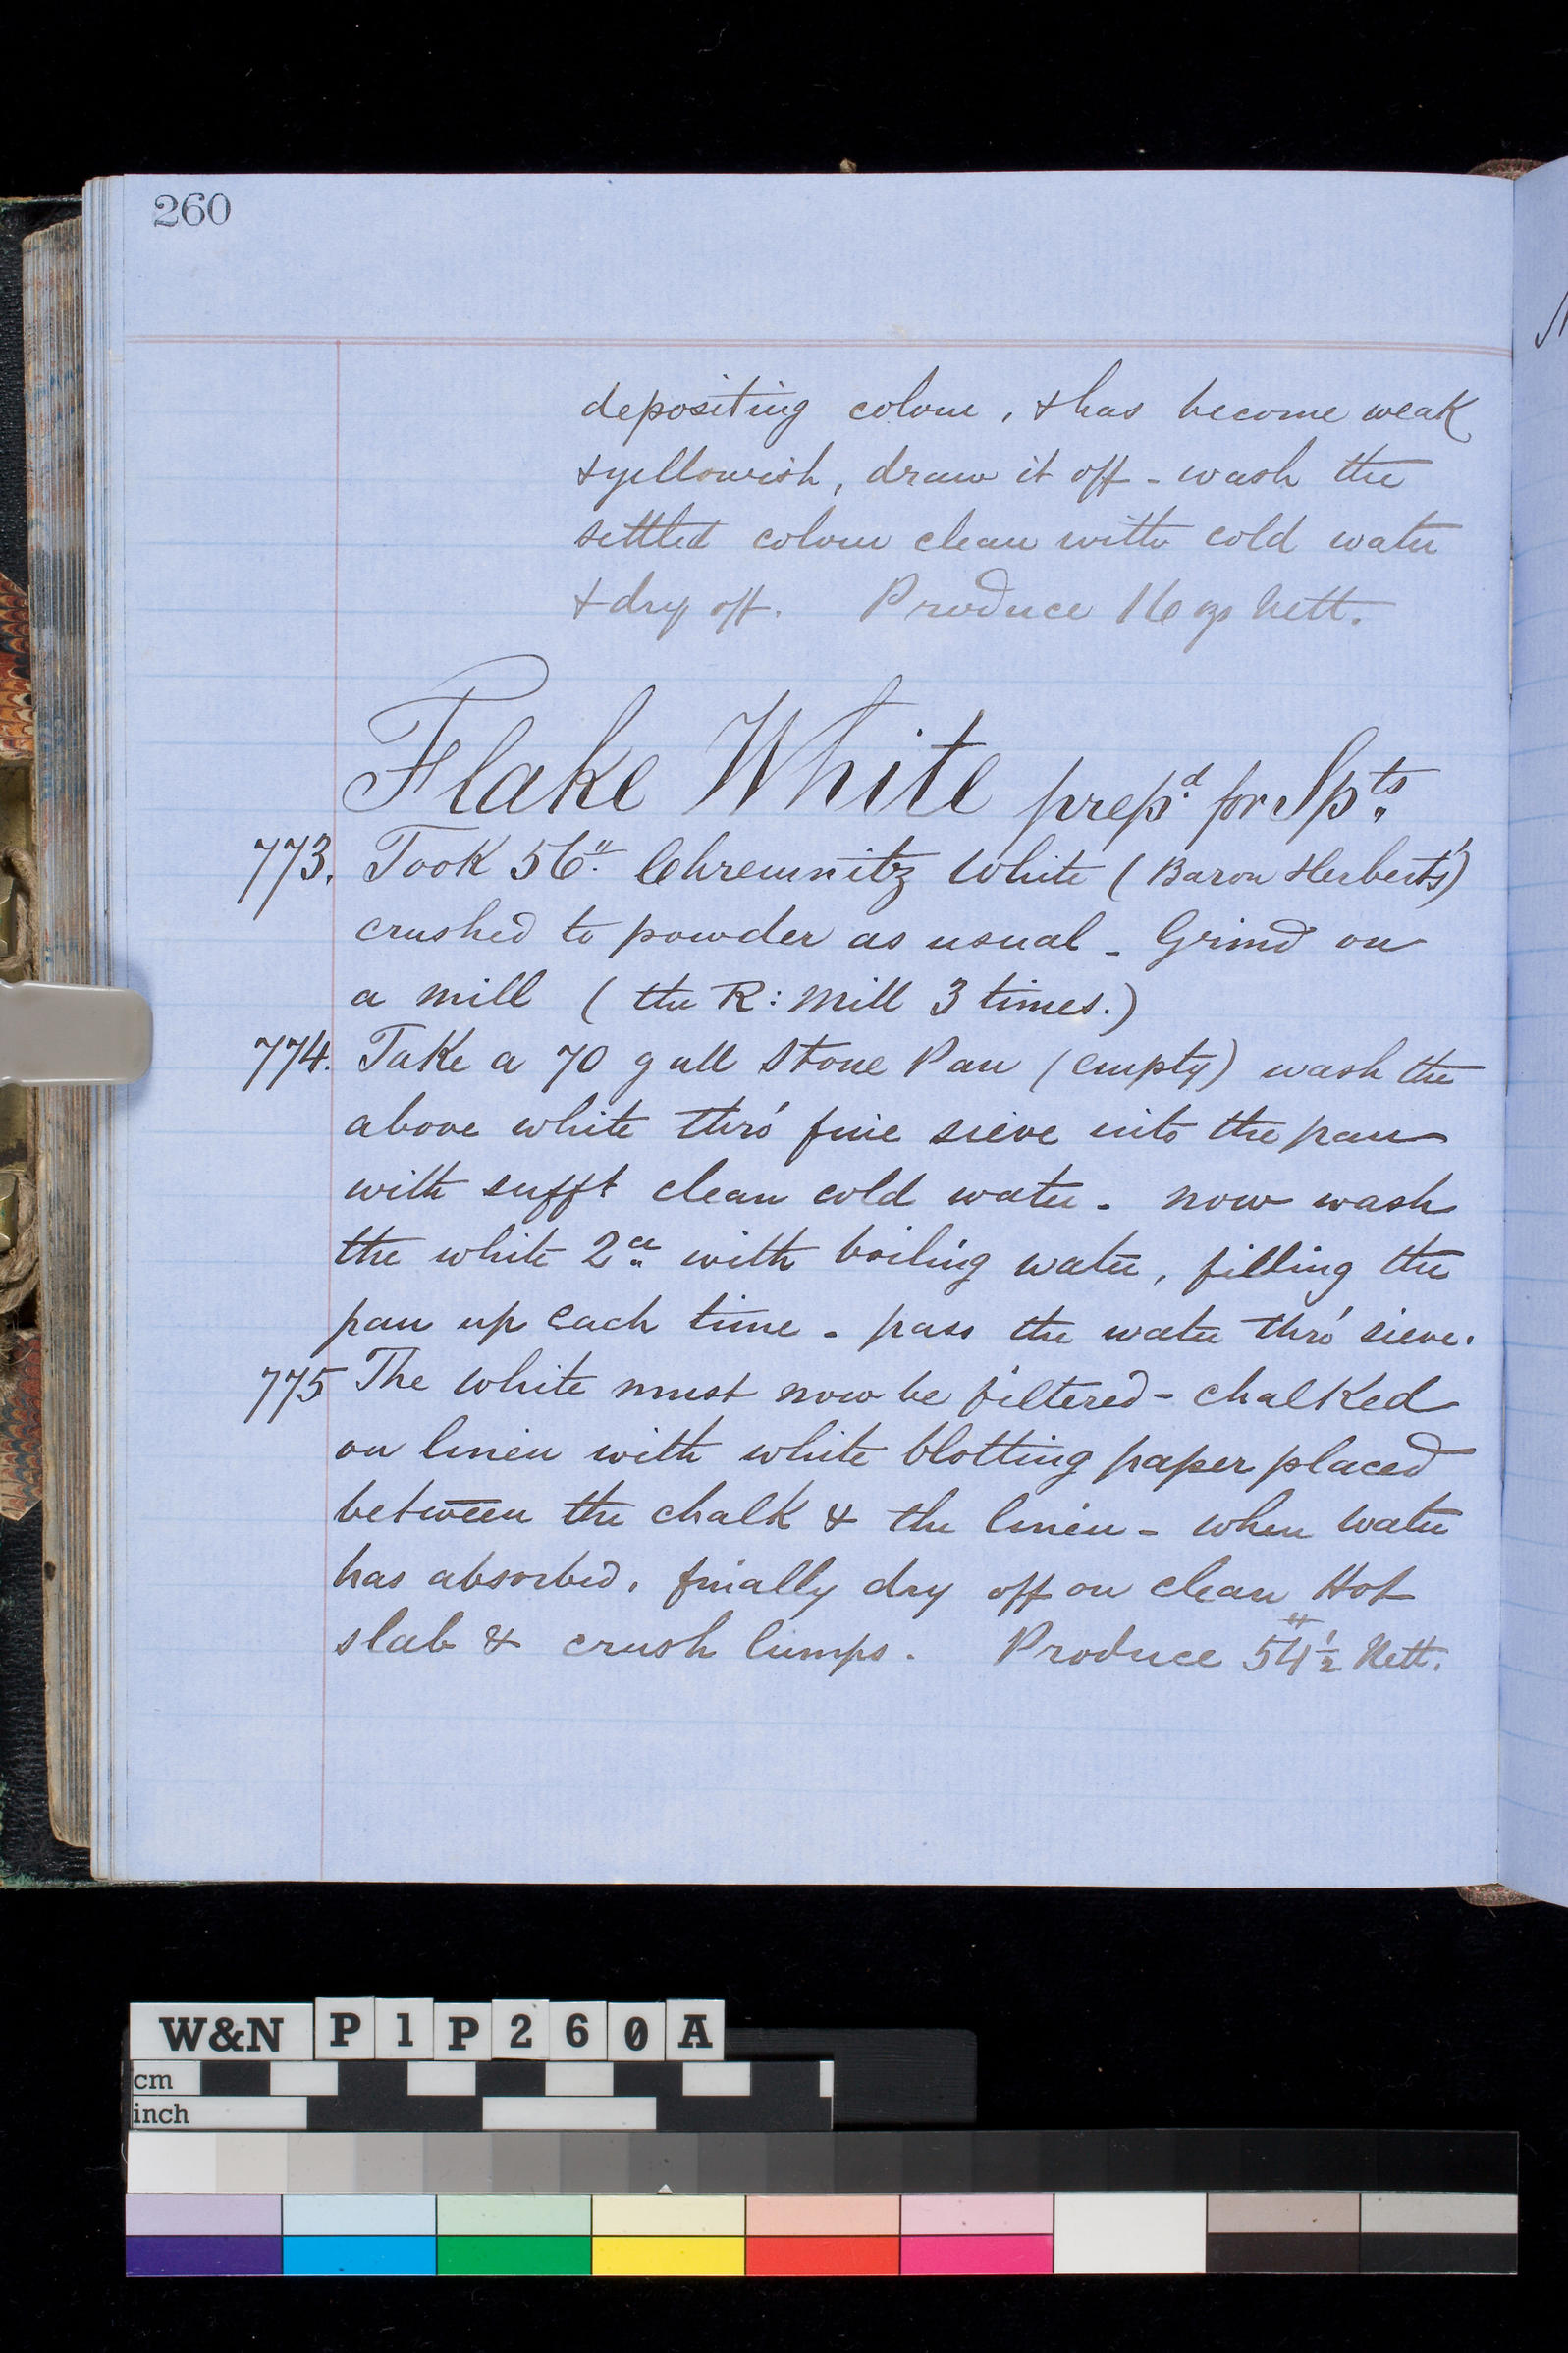 260
depositing colour, & has become weak
& yellowish, draw it off - wash the
settled colour clean with cold water
& dry off. Produce 16 ozs Nett.
Flake White prepd. for Spts.
773. Took 56" Chremnitz White (Baron Herbert's)
crushed to powder as usual - Grind on
a mill (the R: Mill 3 times.)
774. Take a 70 gall Stone Pan (empty) wash the
above white thro' fine sieve into the pan
with sufft clean cold water - now wash
the white 2ce with boiling water, filling the
pan up each time - pass the water thro' sieve.
775 The white must now be filtered - chalked
on linen with white blotting paper placed
between the chalk & the linen - when water
has absorbed, finally dry off on clean Hot
slab & crush lumps. Produce 54½ Nett.
W&N P1P260A
cm
inch